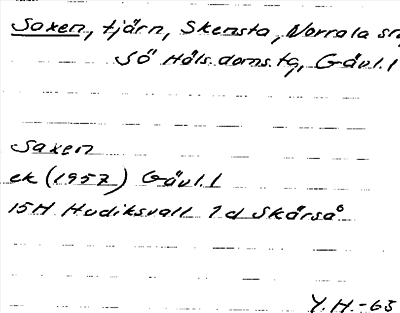 Saxen, tjärn, Skensta, Norrala sn,
Sö Häls. doms. tg, Gävl. l
Saxen
ek (1957) Gävl. l
15H Hudiksvall 1d Skärså
Y.H. -63